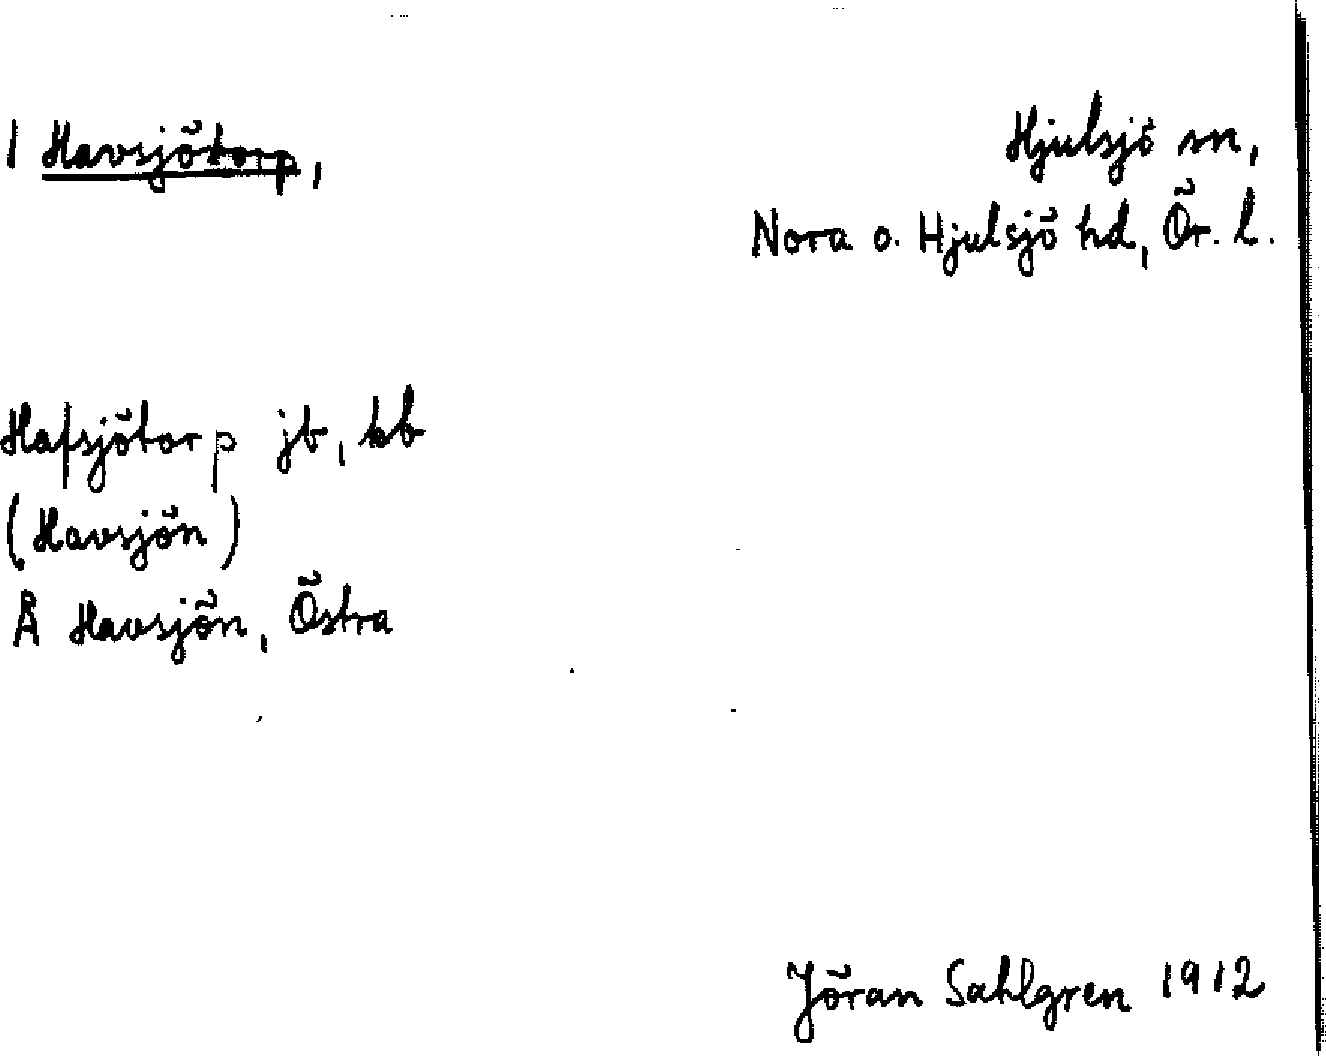 1 Havsjötorp,
Hjulsjö sn,
Nora o. Hjulsjö hd, Ör. l.
Hafsjötorp jb, kb
(Havsjön)
Å Havsjön, Östra
Jöran Sahlgren 1912